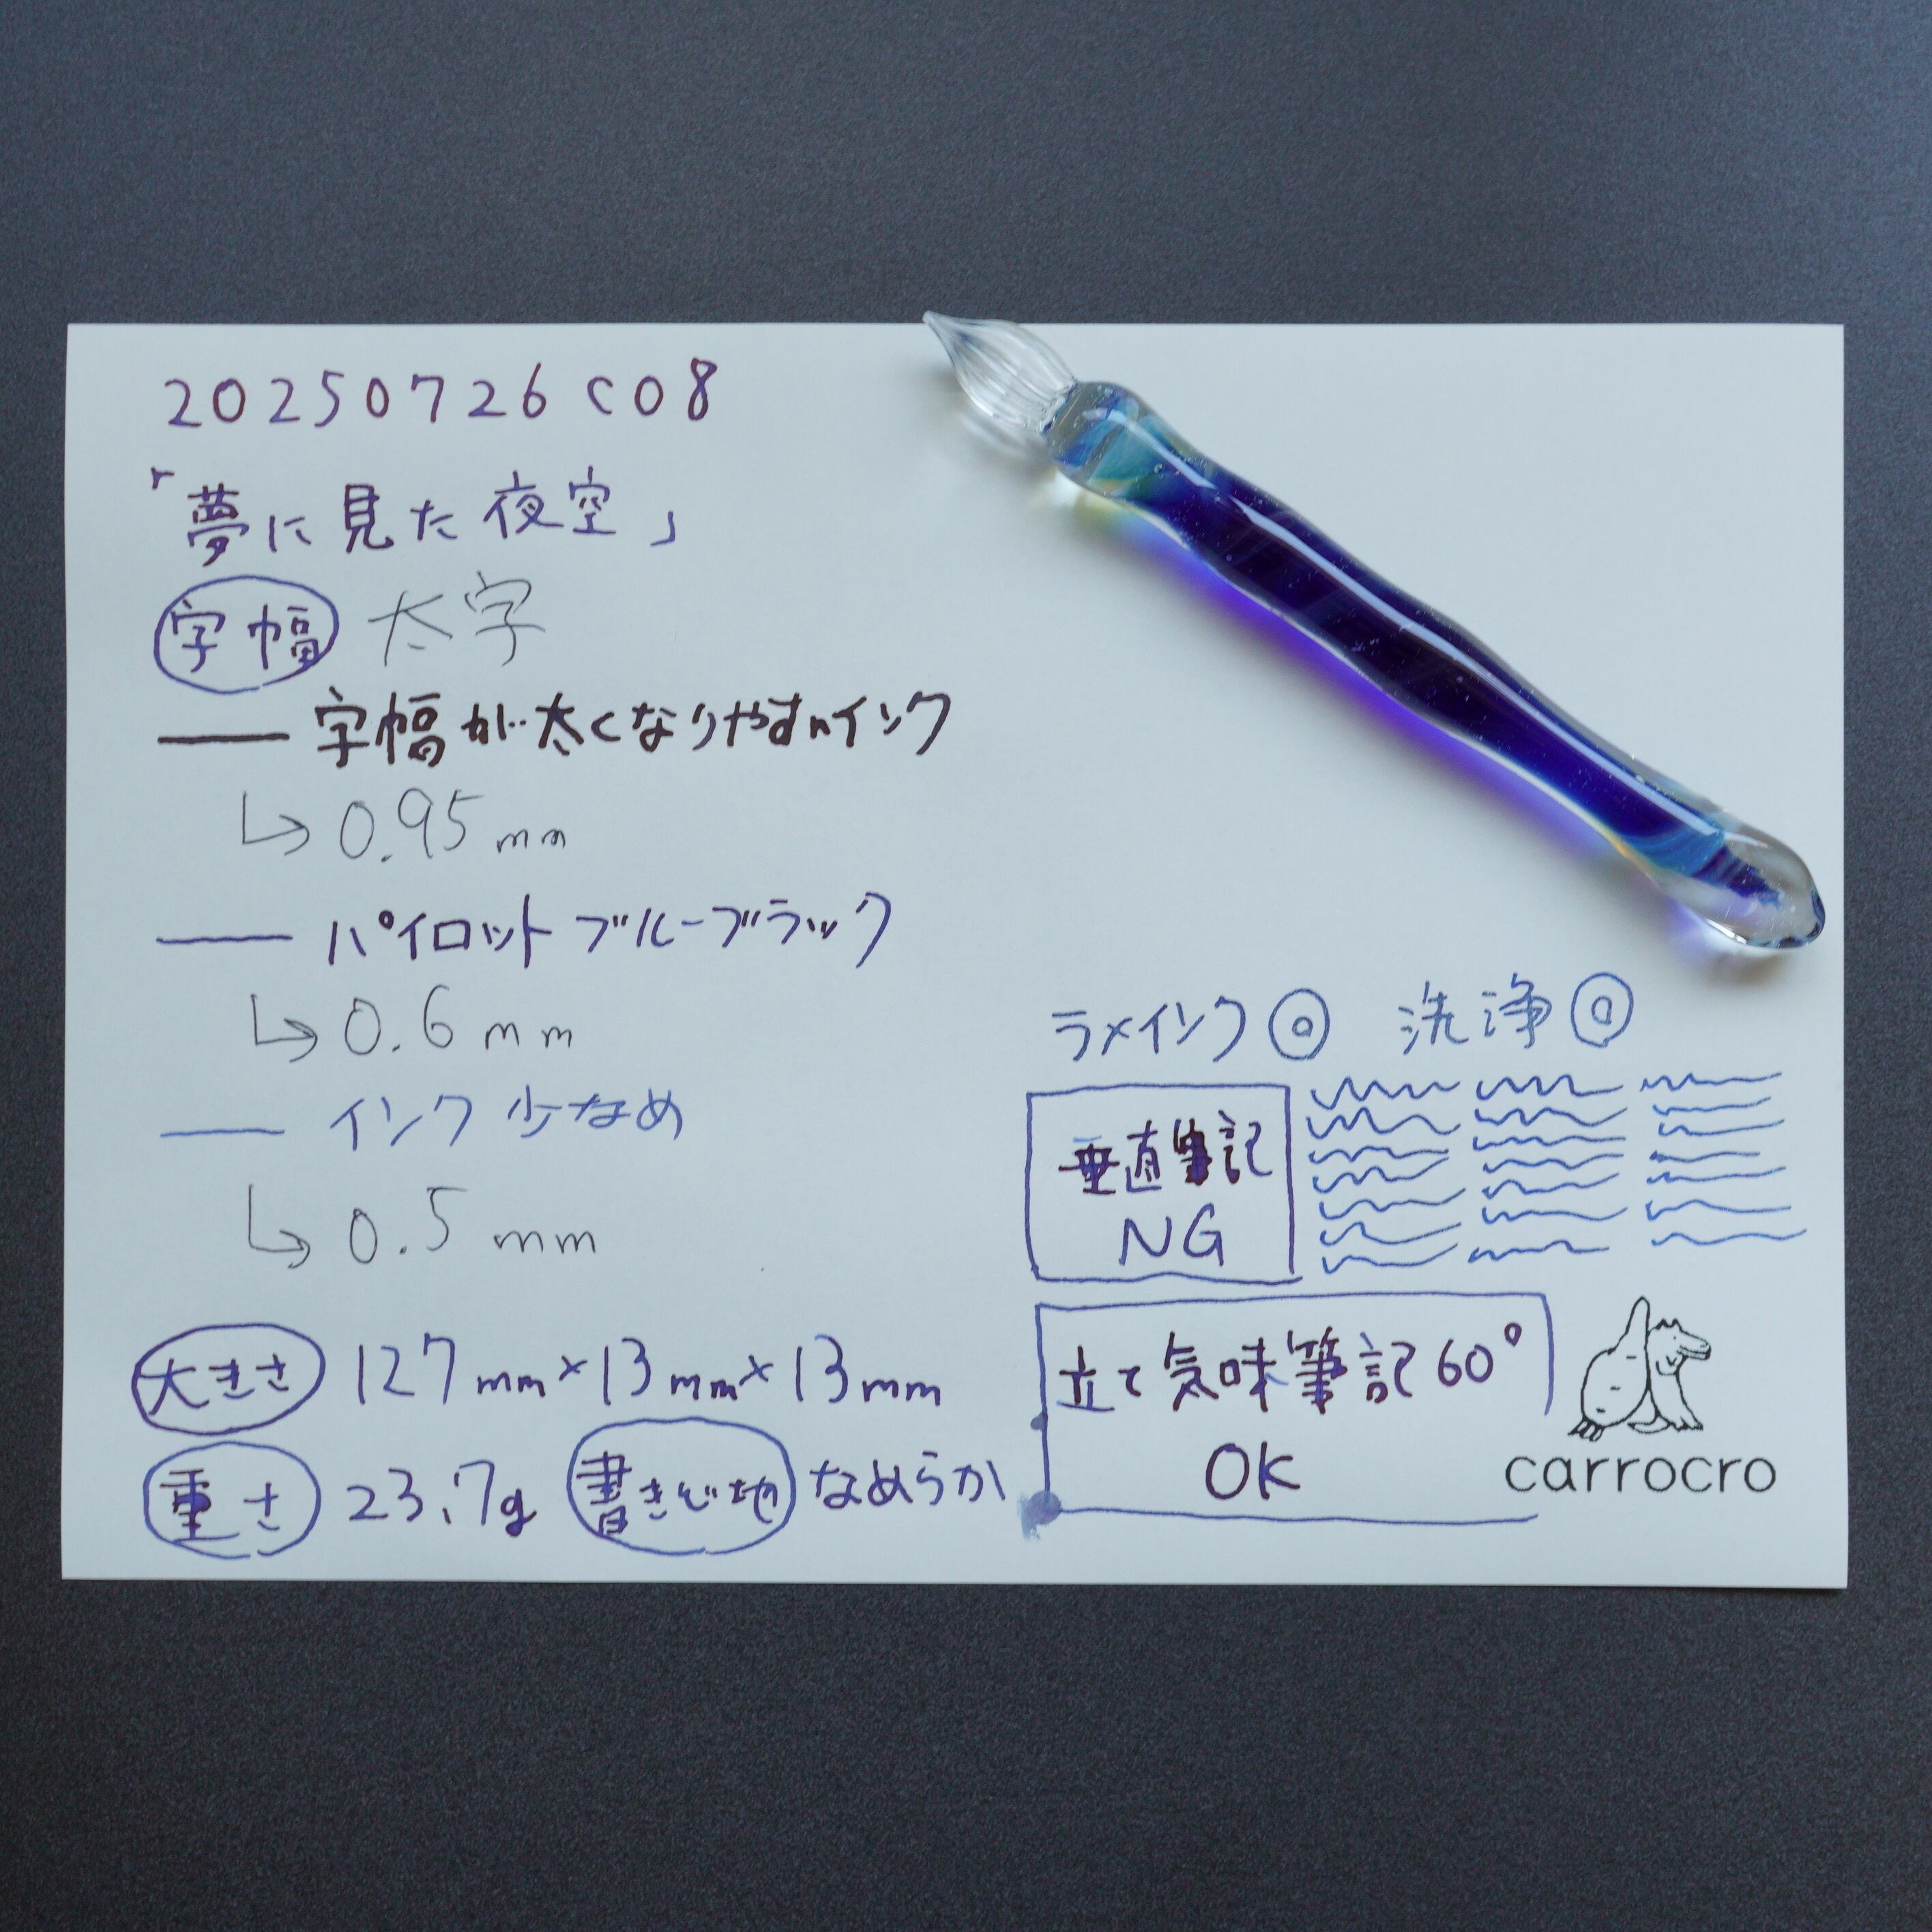 20250726 c08
「夢に見た夜空」
字幅 太字
字幅が太くなりやすいインク
0.95mm
パイロット ブルーブラック
0.6mm
インク少なめ
0.5mm
大きさ 127mm×13mm×13mm
重さ 23.7g 書き心地 なめらか
ラメインク◎ 洗浄◎
垂直筆記
NG
立て気味筆記60°
OK
carrocro